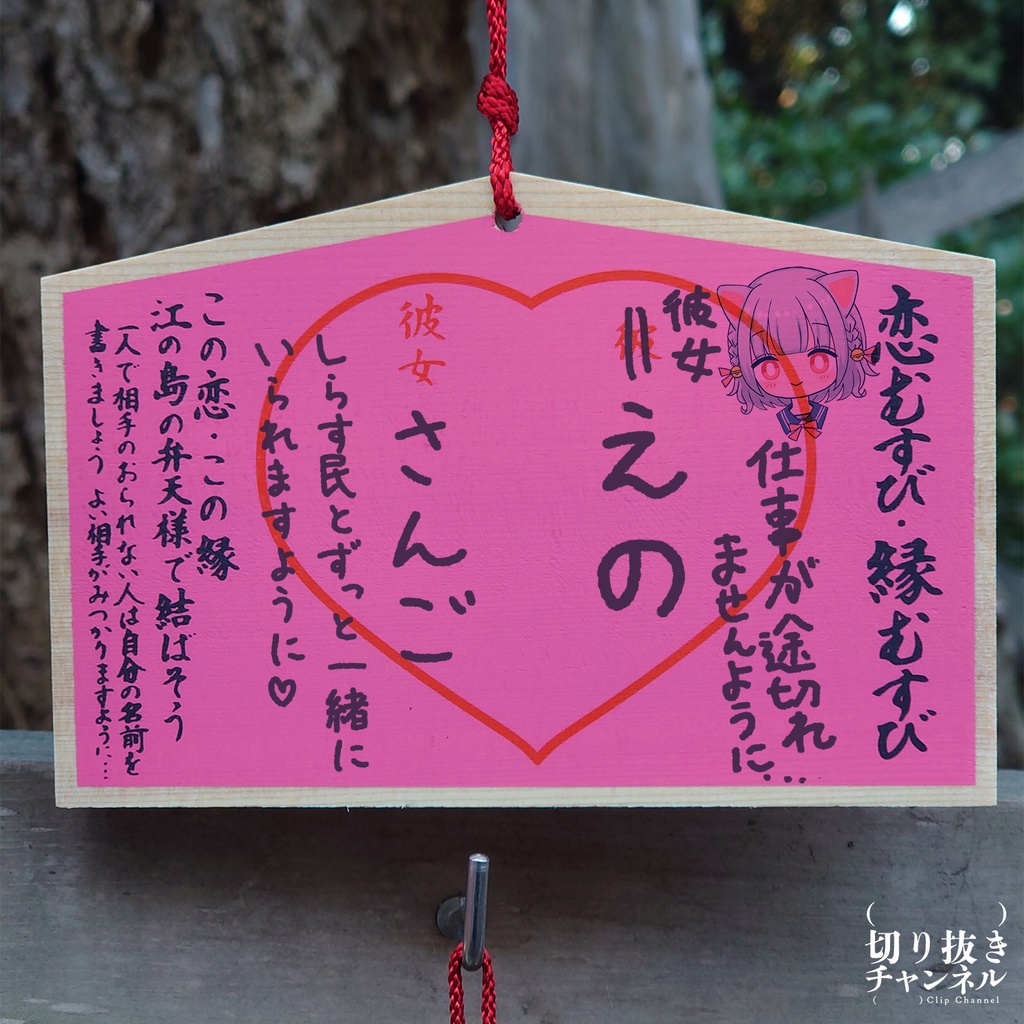 恋むすび・縁むすび
仕事が途切れ
ませんように…
彼女
えの
彼女
さんご
しらす民とずっと一緒に
いられますように♡
この恋・この縁
江の島の弁天様で結ばそう
一人で相手のおられない人は自分の名前を
書きましょう よい相手がみつかりますように…
切り抜き
チャンネル
Clip Channel